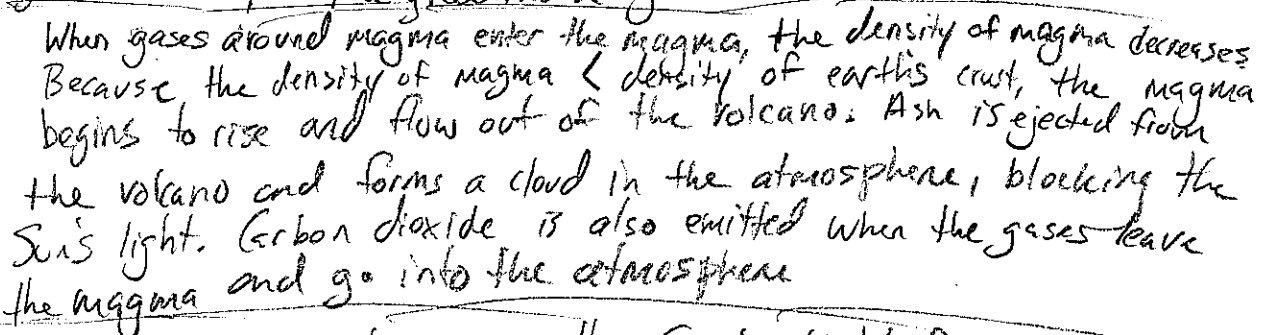 When gases around magma enter the magma, the density of magma decreases.
Because the density of magma < density of earth's crust, the magma
begins to rise and flow out of the volcano. Ash is ejected from
the volcano and forms a cloud in the atmosphere, blocking the
Sun's light. Carbon dioxide is also emitted when the gases leave
the magma and go into the atmosphere